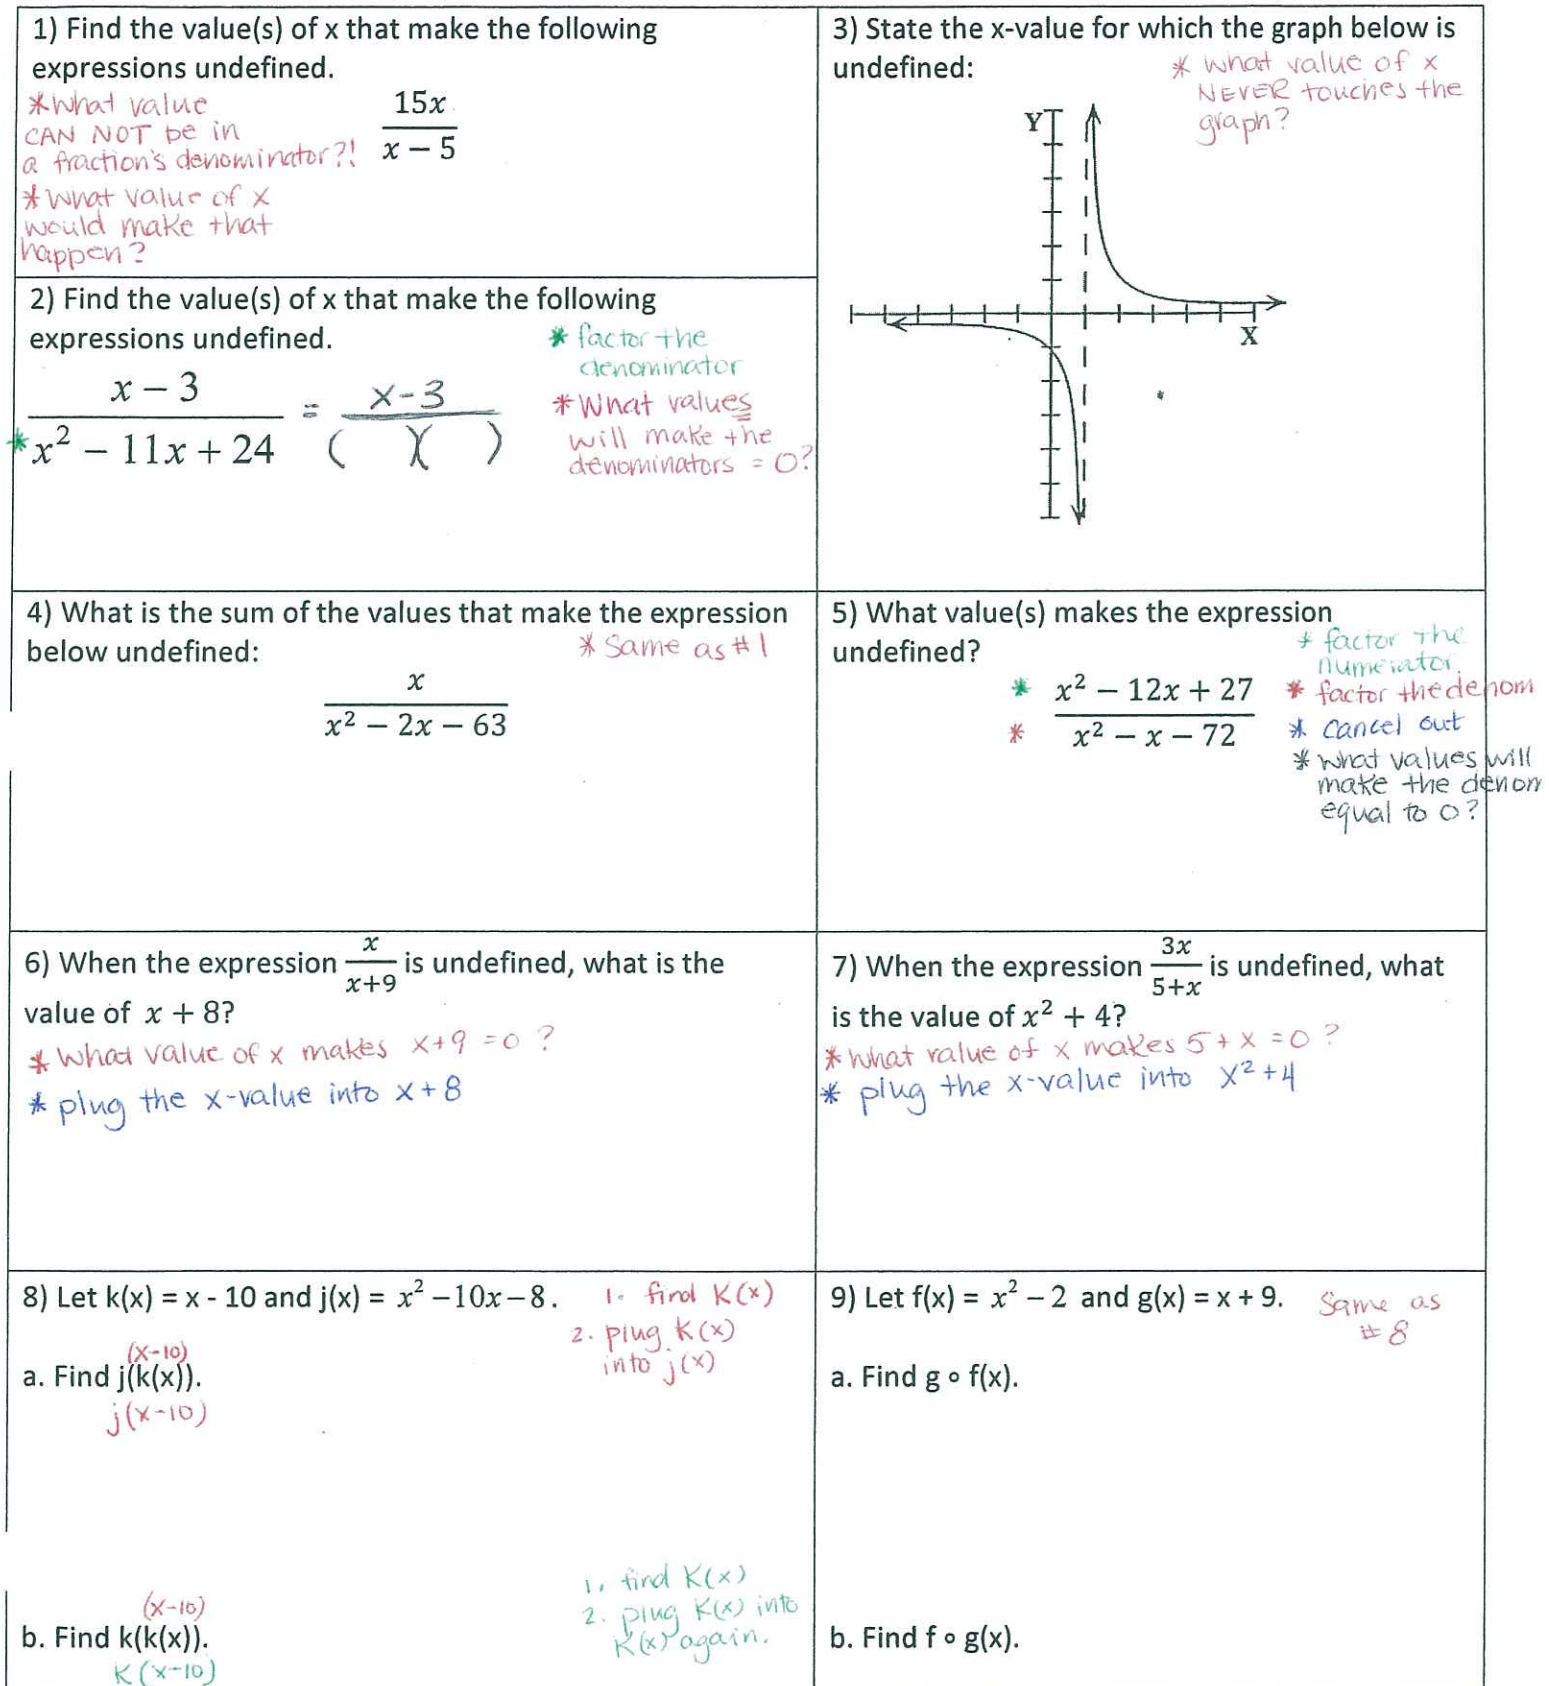 1) Find the value(s) of x that make the following
expressions undefined.
*What value
CAN NOT be in
a fraction's denominator?!
15x
x − 5
*What value of x
would make that
happen?
2) Find the value(s) of x that make the following
expressions undefined.
* factor the
denominator
x − 3
* x² − 11x + 24
= x-3
( )( )
*What values
will make the
denominators = 0?
3) State the x-value for which the graph below is
undefined:
* what value of x
NEVER touches the
graph?
Y
X
4) What is the sum of the values that make the expression
below undefined:
* Same as #1
x
x² − 2x − 63
5) What value(s) makes the expression
undefined?
* factor the
numerator.
* x² − 12x + 27
* x² − x − 72
* factor the denom
* cancel out
* what values will
make the denom
equal to 0?
6) When the expression x/x+9 is undefined, what is the
value of x + 8?
* What value of x makes x+9 =0 ?
* plug the x-value into x+8
7) When the expression 3x/5+x is undefined, what
is the value of x² + 4?
* what value of x makes 5+x=0?
* plug the x-value into x²+4
8) Let k(x) = x - 10 and j(x) = x² −10x−8.
1. find K(x)
2. plug K(x)
into j(x)
(x-10)
a. Find j(k(x)).
j(x-10)
1. find K(x)
2. plug K(x) into
K(x) again.
(x-10)
b. Find k(k(x)).
K(x-10)
9) Let f(x) = x² − 2 and g(x) = x + 9.
Same as
#8
a. Find g ∘ f(x).
b. Find f ∘ g(x).